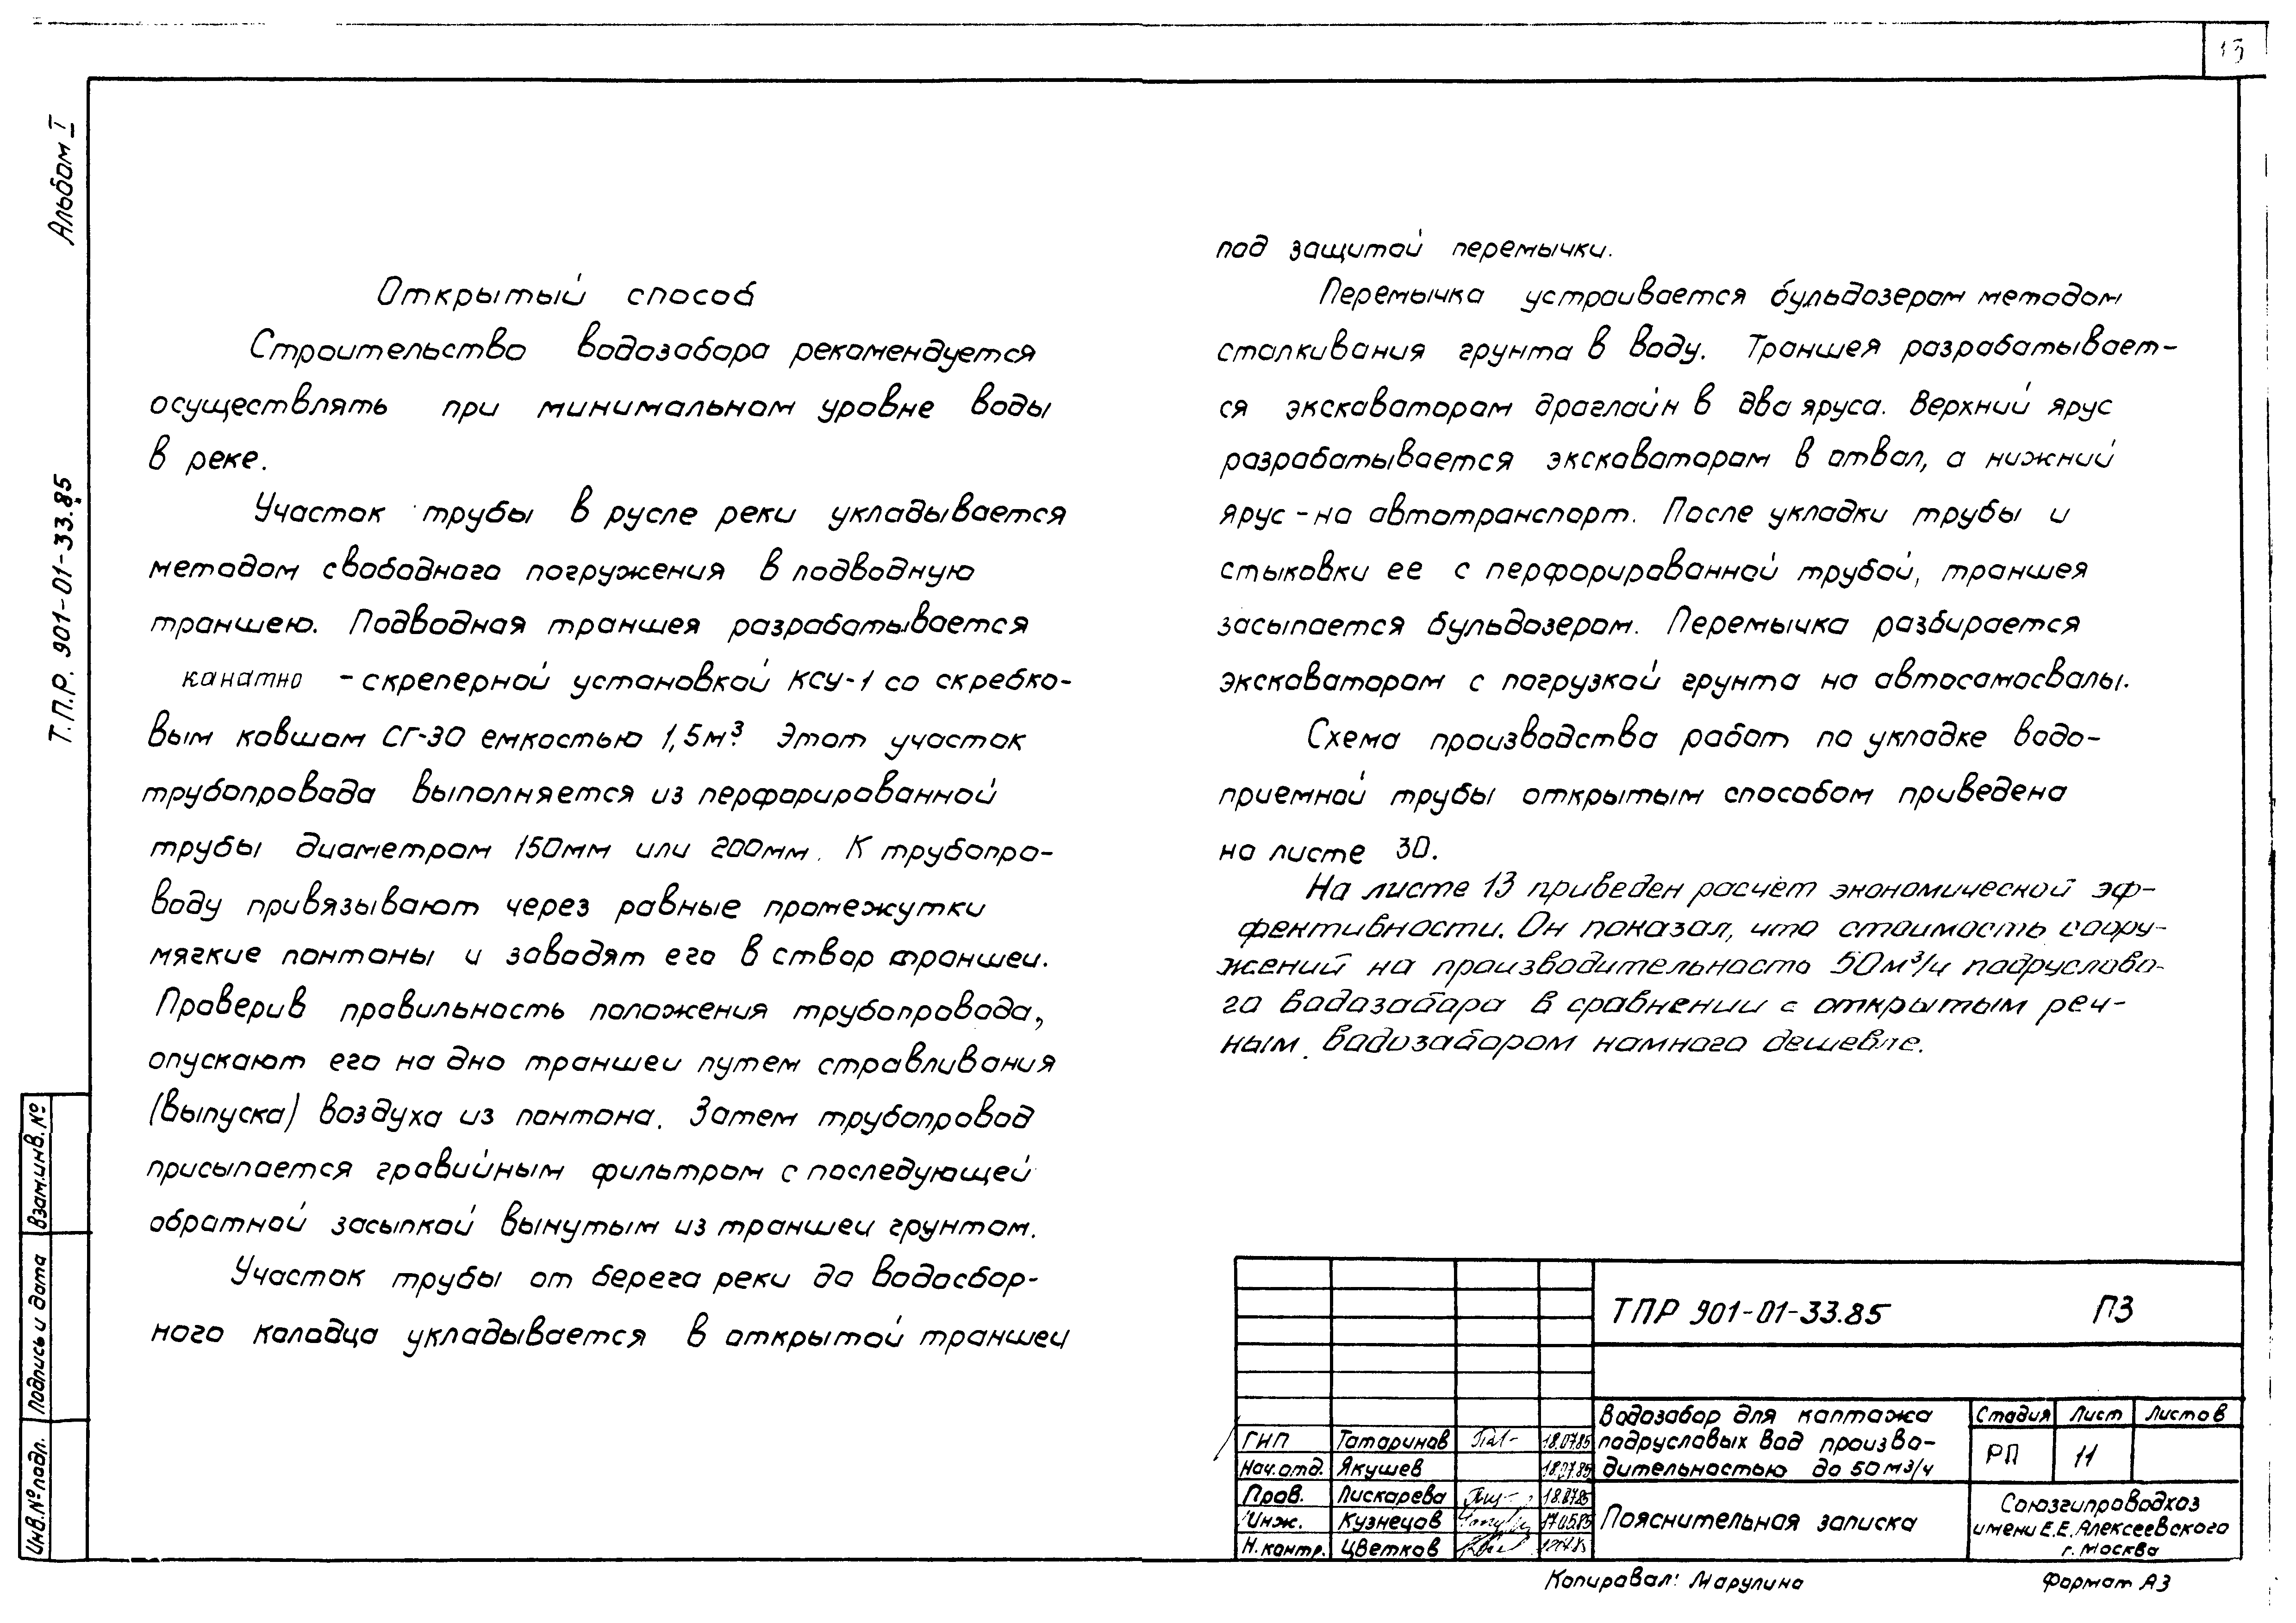 13
Альбом I
Т.П.Р. 901-01-33.85
Открытый способ
Строительство водозабора рекомендуется
осуществлять при минимальном уровне воды
в реке.
Участок трубы в русле реки укладывается
методом свободного погружения в подводную
траншею. Подводная траншея разрабатывается
канатно -скреперной установкой КСУ-1 со скребко-
вым ковшом СГ-30 емкостью 1,5м³. Этот участок
трубопровода выполняется из перфорированной
трубы диаметром 150мм или 200мм. К трубопро-
воду привязывают через равные промежутки
мягкие понтоны и заводят его в створ траншеи.
Проверив правильность положения трубопровода,
опускают его на дно траншеи путем стравливания
(выпуска) воздуха из понтона. Затем трубопровод
присыпается гравийным фильтром с последующей
обратной засыпкой вынутым из траншеи грунтом.
Участок трубы от берега реки до водосбор-
ного колодца укладывается в открытой траншеи
под защитой перемычки.
Перемычка устраивается бульдозером методом
сталкивания грунта в воду. Траншея разрабатывает-
ся экскаватором драглайн в два яруса. Верхний ярус
разрабатывается экскаватором в отвал, а нижний
ярус -на автотранспорт. После укладки трубы и
стыковки ее с перфорированной трубой, траншея
засыпается бульдозером. Перемычка разбирается
экскаватором с погрузкой грунта на автосамосвалы.
Схема производства работ по укладке водо-
приемной трубы открытым способом приведена
на листе 30.
На листе 13 приведен расчет экономической эф-
фективности. Он показал, что стоимость соору-
жений на производительность 50м³/ч подруслово-
го водозабора в сравнении с открытым реч-
ным водозабором намного дешевле.
Взам.инв.№
Подпись и дата
Инв.№подл.
ТПР 901-01-33.85 ПЗ
Водозабор для каптажа
подрусловых вод произво-
дительностью до 50м³/ч
Стадия Лист Листов
РП 11
ГИП Татаринов 18.07.85
Нач.отд. Якушев 18.07.85
Пров. Пискарева 18.07.85
Инж. Кузнецов 17.05.85
Н.контр. Цветков
Пояснительная записка
Союзгипроводхоз
имени Е.Е.Алексеевского
г. Москва
Копировал: Марулина Формат А3